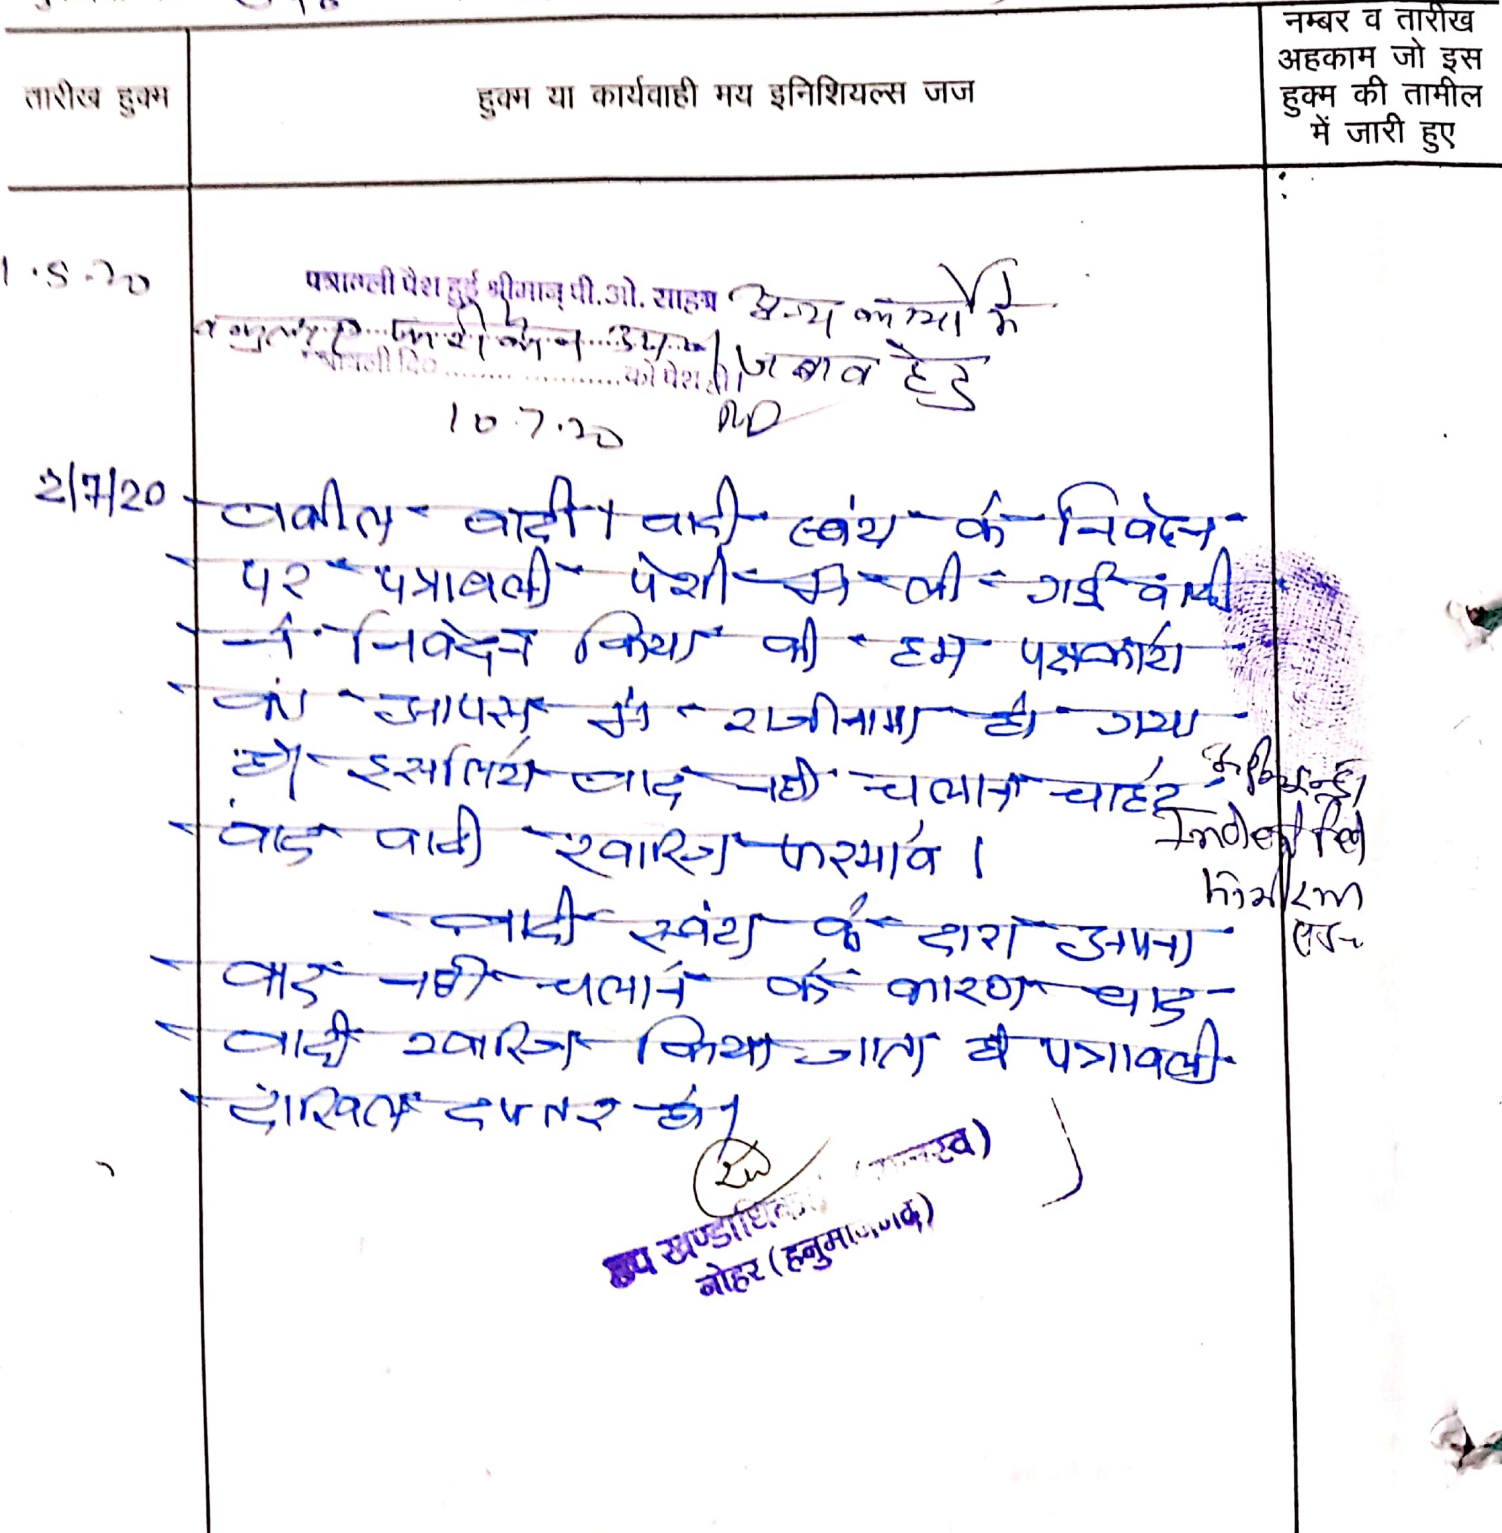 तारीख हुक्म
हुक्म या कार्यवाही मय इनिशियल्स जज
नम्बर व तारीख
अहकाम जो इस
हुक्म की तामील
में जारी हुए
पत्रावली पेश हुई श्रीमान् पी.ओ. साहब अन्य कार्यो में
को पेश हो। जबाव हेतु
10.7.20
2/7/20
वकील वादी। वादी स्वंय के निवेदन
पर पत्रावली पेशी में ली गई वादी
ने निवेदन किया की हम पक्षकारो
का आपस में राजीनामा हो गया
है। इसलिये वाद नही चलाना चाहते
वाद वादी खारिज फरमावे।
वादी स्वंय के द्वारा अपना
वाद नही चलाने के कारण वाद
वादी खारिज किया जाता है पत्रावली
दाखिल दफ्तर हो।
उप खण्डाधिकारी
नोहर (हनुमानगढ़)